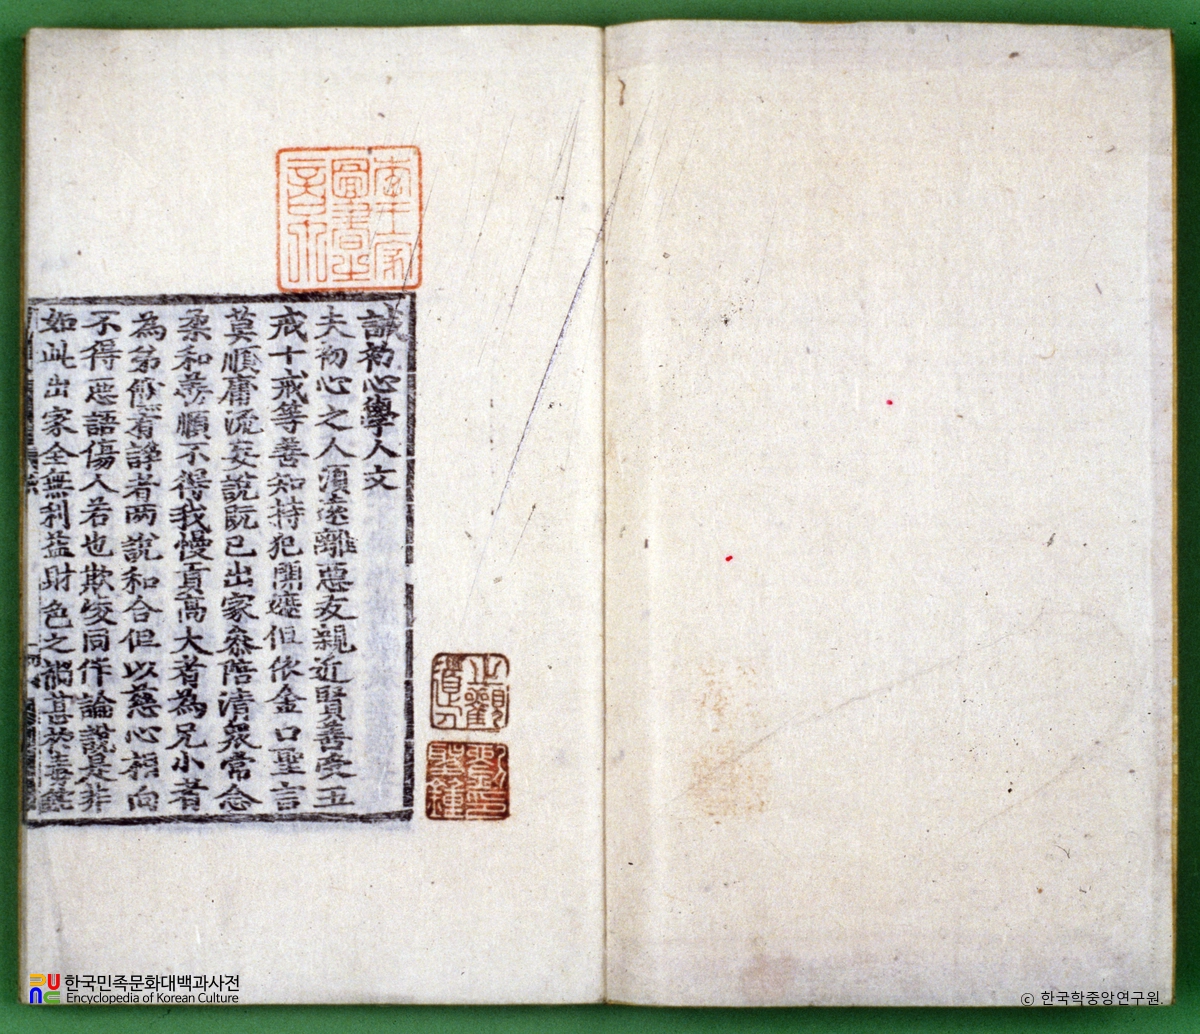 李王家
圖書之
章
誡初心學人文
夫初心之人須遠離惡友親近賢善受五
戒十戒等善知持犯開遮但依金口聖言
莫順庸流妄說旣已出家叅陪清衆常念
柔和善順不得我慢貢高大者為兄小者
為弟儻有諍者兩說和合但以慈心相向
不得惡語傷人若也欺凌同伴論說是非
如此出家全無利益財色之禍甚於毒蛇
한국민족문화대백과사전
Encyclopedia of Korean Culture
© 한국학중앙연구원